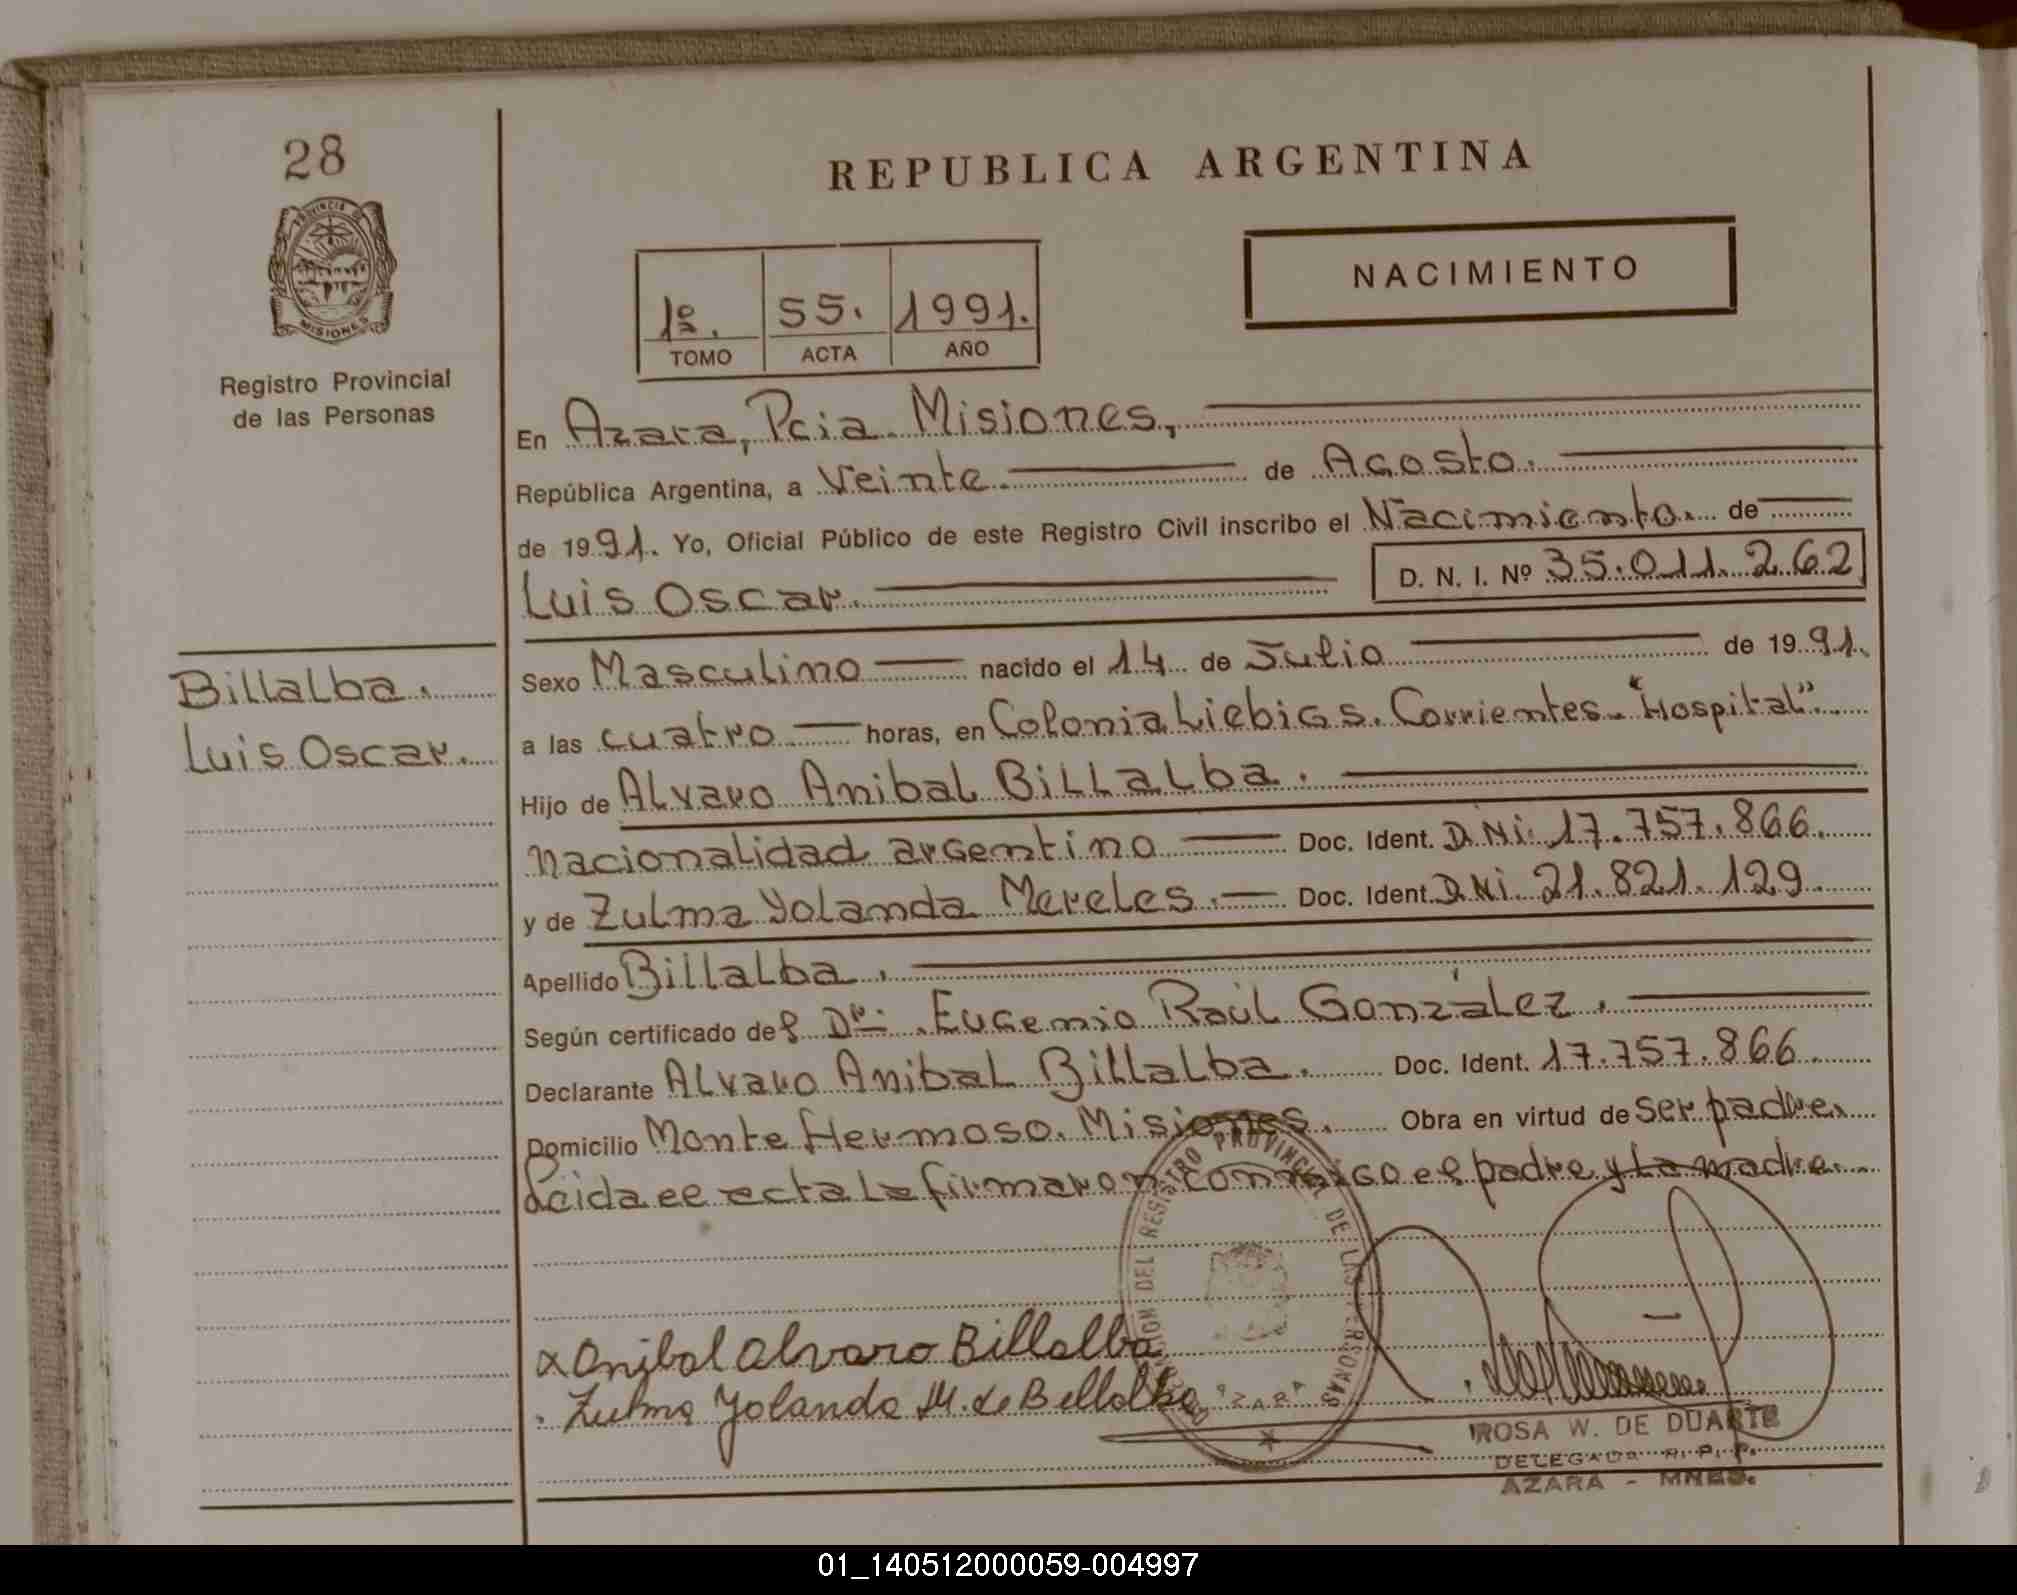 28
PROVINCIA DE
MISIONES
Registro Provincial
de las Personas
REPUBLICA ARGENTINA
1º. 55. 1991.
TOMO ACTA AÑO
NACIMIENTO
En Azara, Pcia. Misiones,
República Argentina, a Veinte. de Agosto.
de 1991. Yo, Oficial Público de este Registro Civil inscribo el Nacimiento. de
Luis Oscar. D. N. I. Nº 35.011.262
Billalba.
Luis Oscar.
Sexo Masculino nacido el 14 de Julio de 1991.
a las cuatro horas, en Colonia Liebigs. Corrientes. "Hospital".
Hijo de Alvaro Anibal Billalba.
nacionalidad argentino Doc. Ident. D.Ni. 17.757.866.
y de Zulma Yolanda Mereles. Doc. Ident. D.Ni. 21.821.129.
Apellido Billalba.
Según certificado del Dr. Eugenio Raúl González.
Declarante Alvaro Anibal Billalba. Doc. Ident. 17.757.866
Domicilio Monte Hermoso. Misiones. Obra en virtud de ser padre.
Leida el acta la firmaron conmigo el padre y la madre.
REGISTRO PROVINCIAL DE LAS PERSONAS
AZARA
x Anibal Alvaro Billalba
. Zulma Yolanda M. de Billalba
ROSA W. DE DUARTE
DELEGADA R. P. P.
AZARA - MNES.
01_140512000059-004997